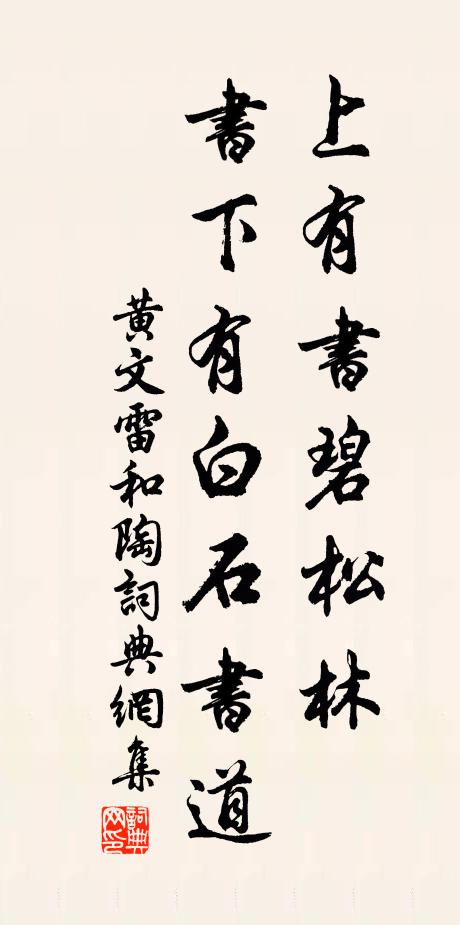 上有書碧松林
書下有白石書道
黃文雷和陶詞典網集
詞典網印